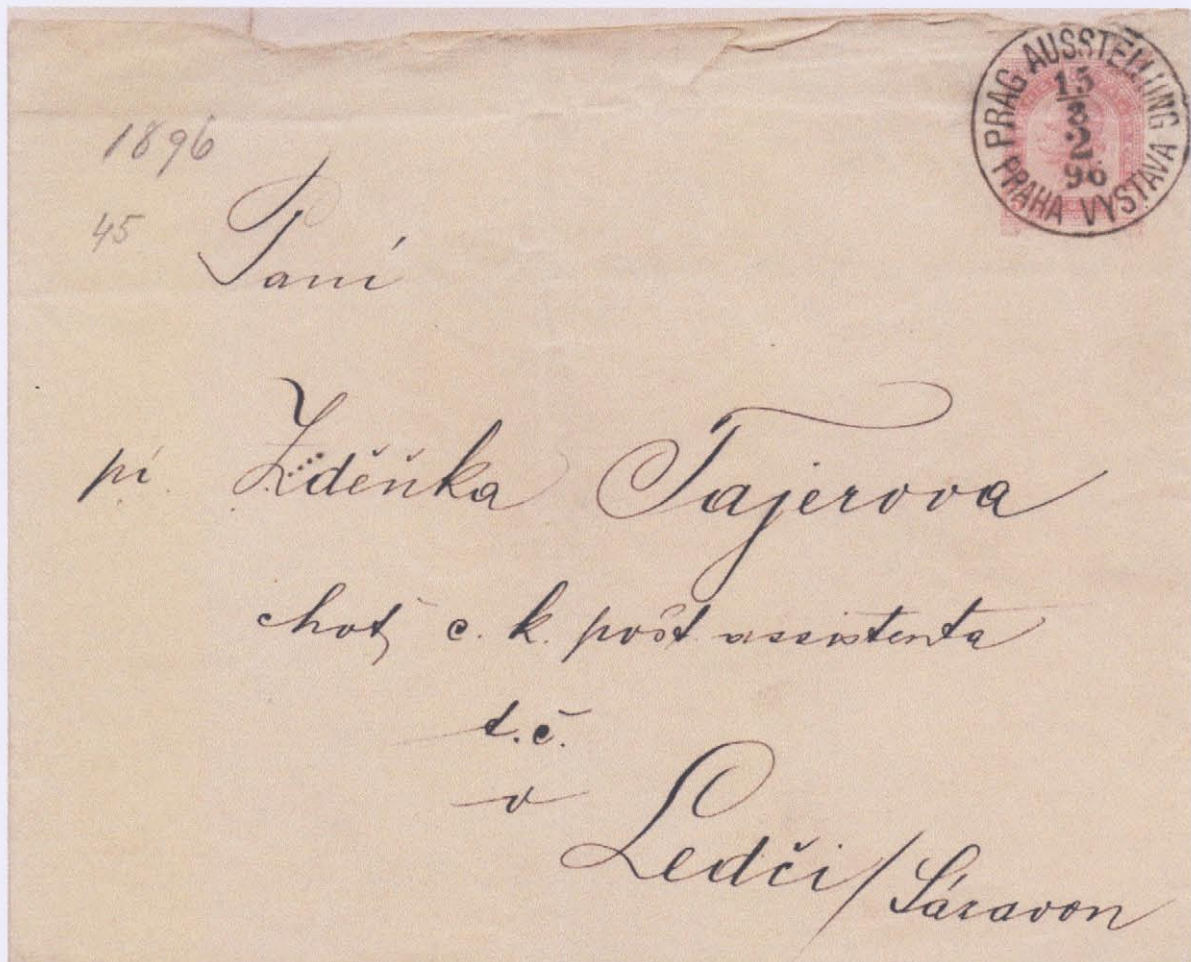 1896
45
PRAG AUSSTELLUNG
15
8
2
96
PRAHA VÝSTAVA
Paní
pí Zděňka Tajerova
choť c. k. pošt assistenta
t.č.
v
Ledči/Sázavou